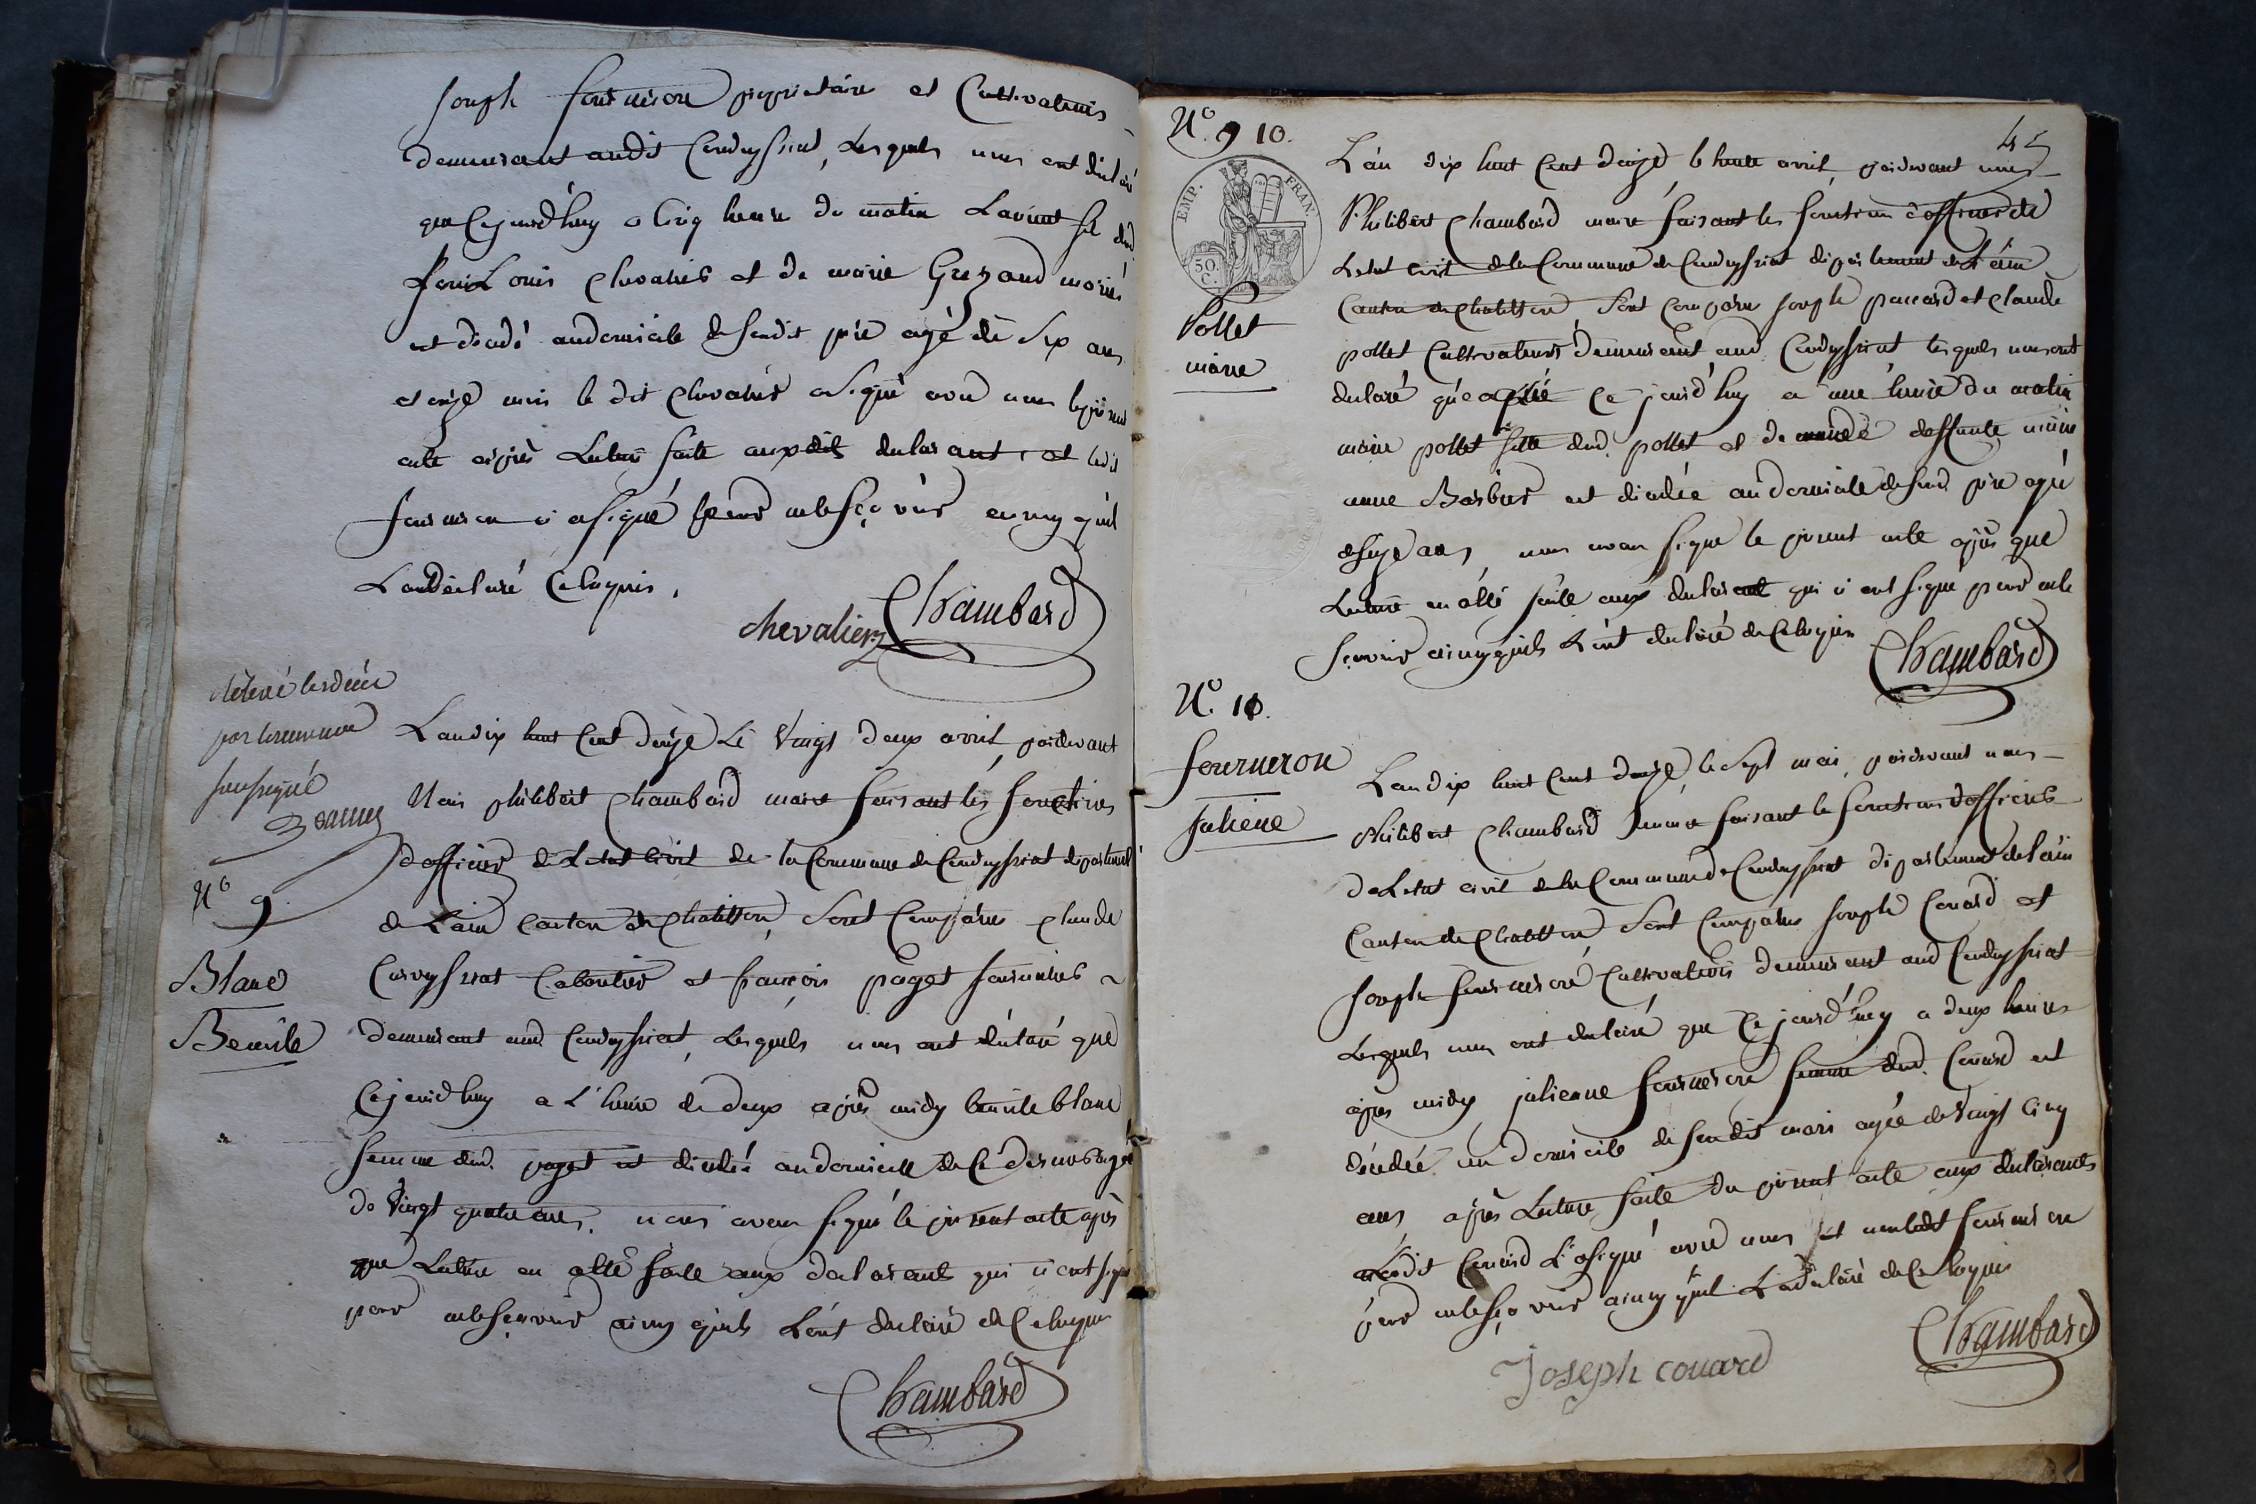 Joseph fourneron propriétaire et Cultivateurs
demeurant audit Condeyssiat, Lesquels nous ont déclaré
que Cejourd'huy a Cinq heure du matin Laurent fils dud.
Jean Louis Chevalier et de marie Guezaud mariés
est décédé audomicile de sondit père agé de Six ans
et onze mois le dit Chevalier a signé avec nous le présent
acte après Lecture faite auxdits declarant et ledit
fourneron n'a signé pour ne le sçavoir ainsy qu'il
L'a déclaré Ce huyris.
chevalier Chambard
relevé les décès
par le receveur
soussigné
L'an dix huit Cent douze Le Vingt deux avril, pardevant
Nous philibert Chambard maire faisant les fonctions
d'officier de L'etat civil de la Commune de Condeyssiat département
de L'ain Canton de Chatillon, Sont Comparus Claude
Corveyssiat Cabaretier et françois paget journalier
demeurant aud. Condeyssiat, Lesquels nous ont déclaré que
Cejourd'huy a L'heure de deux après midy benoite blanc
femme dud. paget est décédée audomicile de Ce dernier agée
de Vingt quatre ans. nous avons signé le présent acte après
que Lecture en a été faite aux declarants qui n'ont signé
pour ne le sçavoir ainsy qu'ils L'ont declaré de Ce requis
N° 9.
Blanc
Benoite
Chambard
45
N°. 9 10.
EMP. FRAN.
50 C.
Pollet
marie
L'an dix huit Cent douze, le trente avril, pardevant nous
Philibert Chambard maire faisant les fonctions d'officier de
L'etat civil de la Commune de Condeyssiat département de L'ain
Canton de Chatillon, Sont Comparus joseph pauard et Claude
pollet Cultivateurs demeurant aud. Condeyssiat lesquels nous ont
declaré que Ce jourd'huy a une heure du matin
marie pollet fille dud. pollet et de deffunte marie
anne Barbier est décédée au domicile de sond. père agée
de seize ans, nous avons signé le présent acte après que
Lecture en a été faite aux declarant qui n'ont signé pour ne le
sçavoir ainsy qu'ils L'ont declaré de Ce requis
Chambard
N°. 11.
fourneron
juliene
L'an dix huit Cent douze, le Sept mai, pardevant nous
philibert Chambard maire faisant les fonctions d'officier
de L'etat civil de la Commune de Condeyssiat département de L'ain
Canton de Chatillon, Sont Comparus joseph Couard et
joseph fourneron Cultivateurs demeurant aud. Condeyssiat
Lesquels nous ont declaré que Ce jourd'huy a deux heures
après midy julienne fourneron femme dud. Couard est
décédée au domicile de sondit mari agée de Vingt Cinq
ans après Lecture faite du présent acte aux declarants
Ledit Couard L'a signé avec nous et non ledit fourneron
pour ne le sçavoir ainsy qu'il L'a declaré de Ce requis
Chambard
Joseph couard